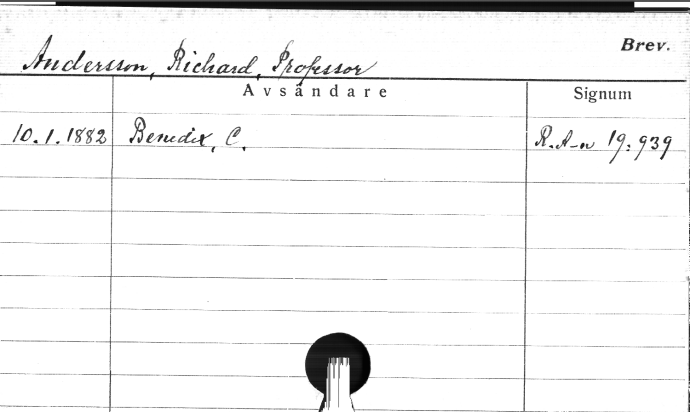 Brev.
Andersson, Richard, Professor
Avsändare Signum
10.1.1882 Benedix, C. R.A-n 19:939